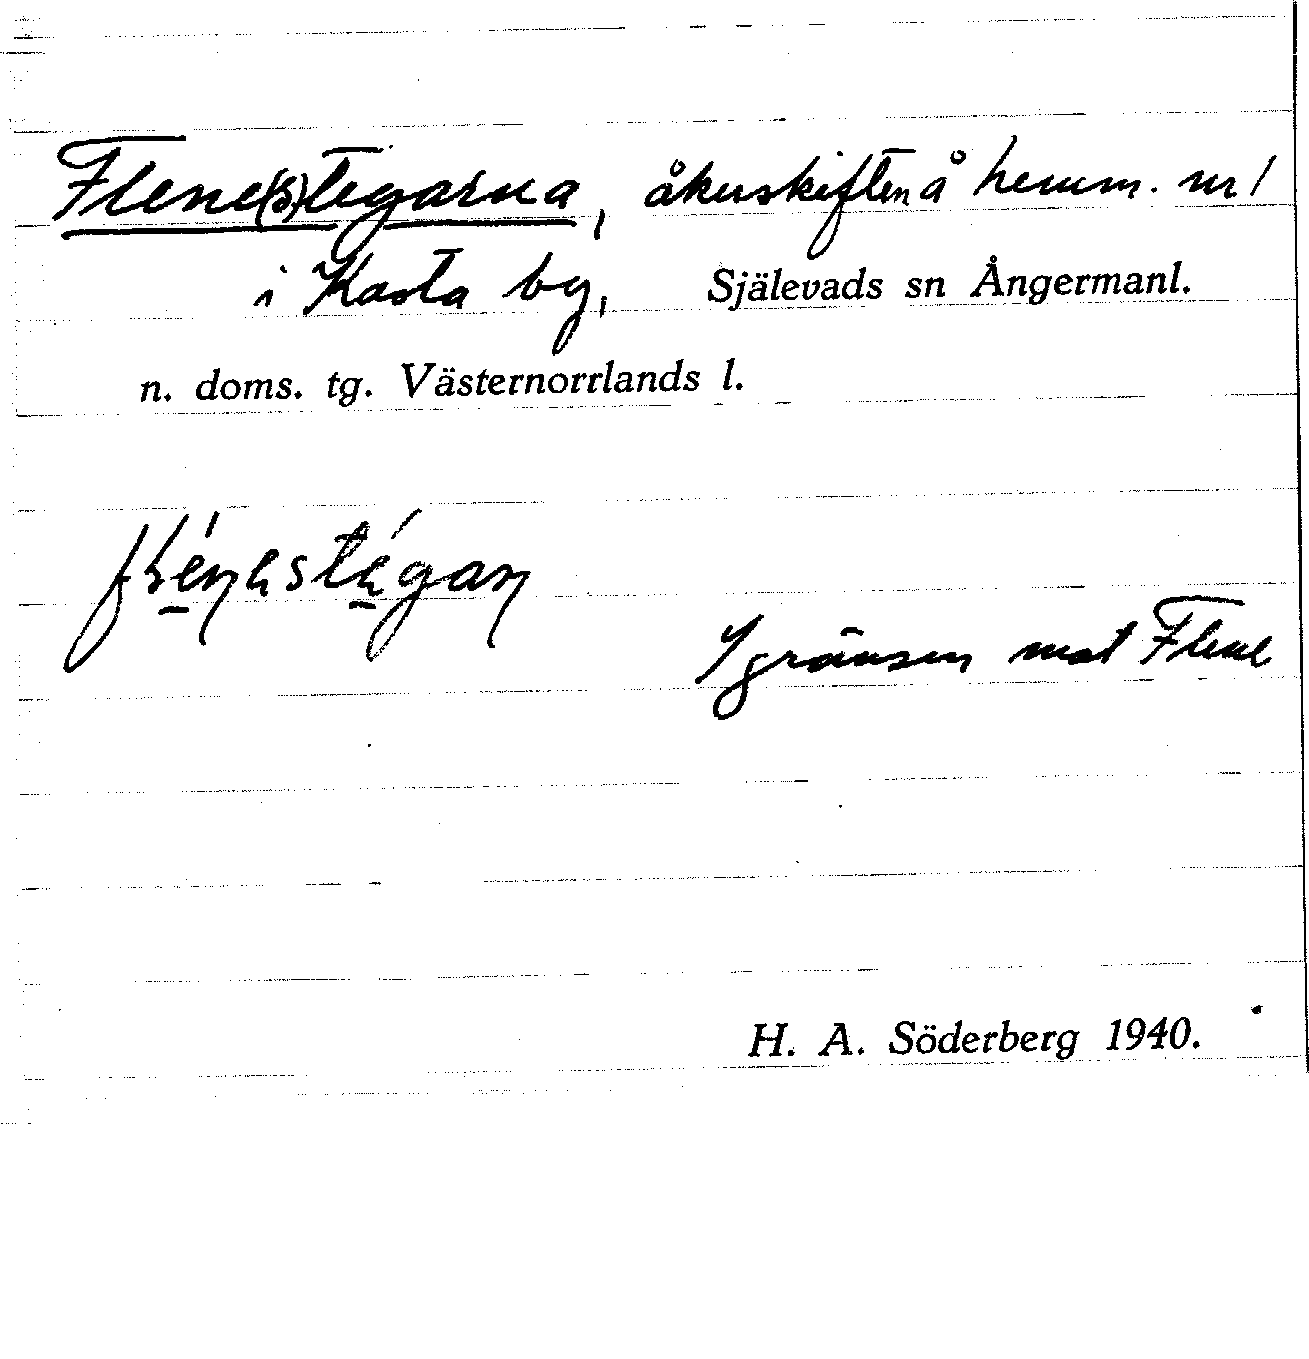 Flene(s)tegarna, åkerskiften å hemm. nr 1
i Kasta by, Själevads sn Ångermanl.
n. doms. tg. Västernorrlands l.
I gränsen mot Flene
H. A. Söderberg 1940.